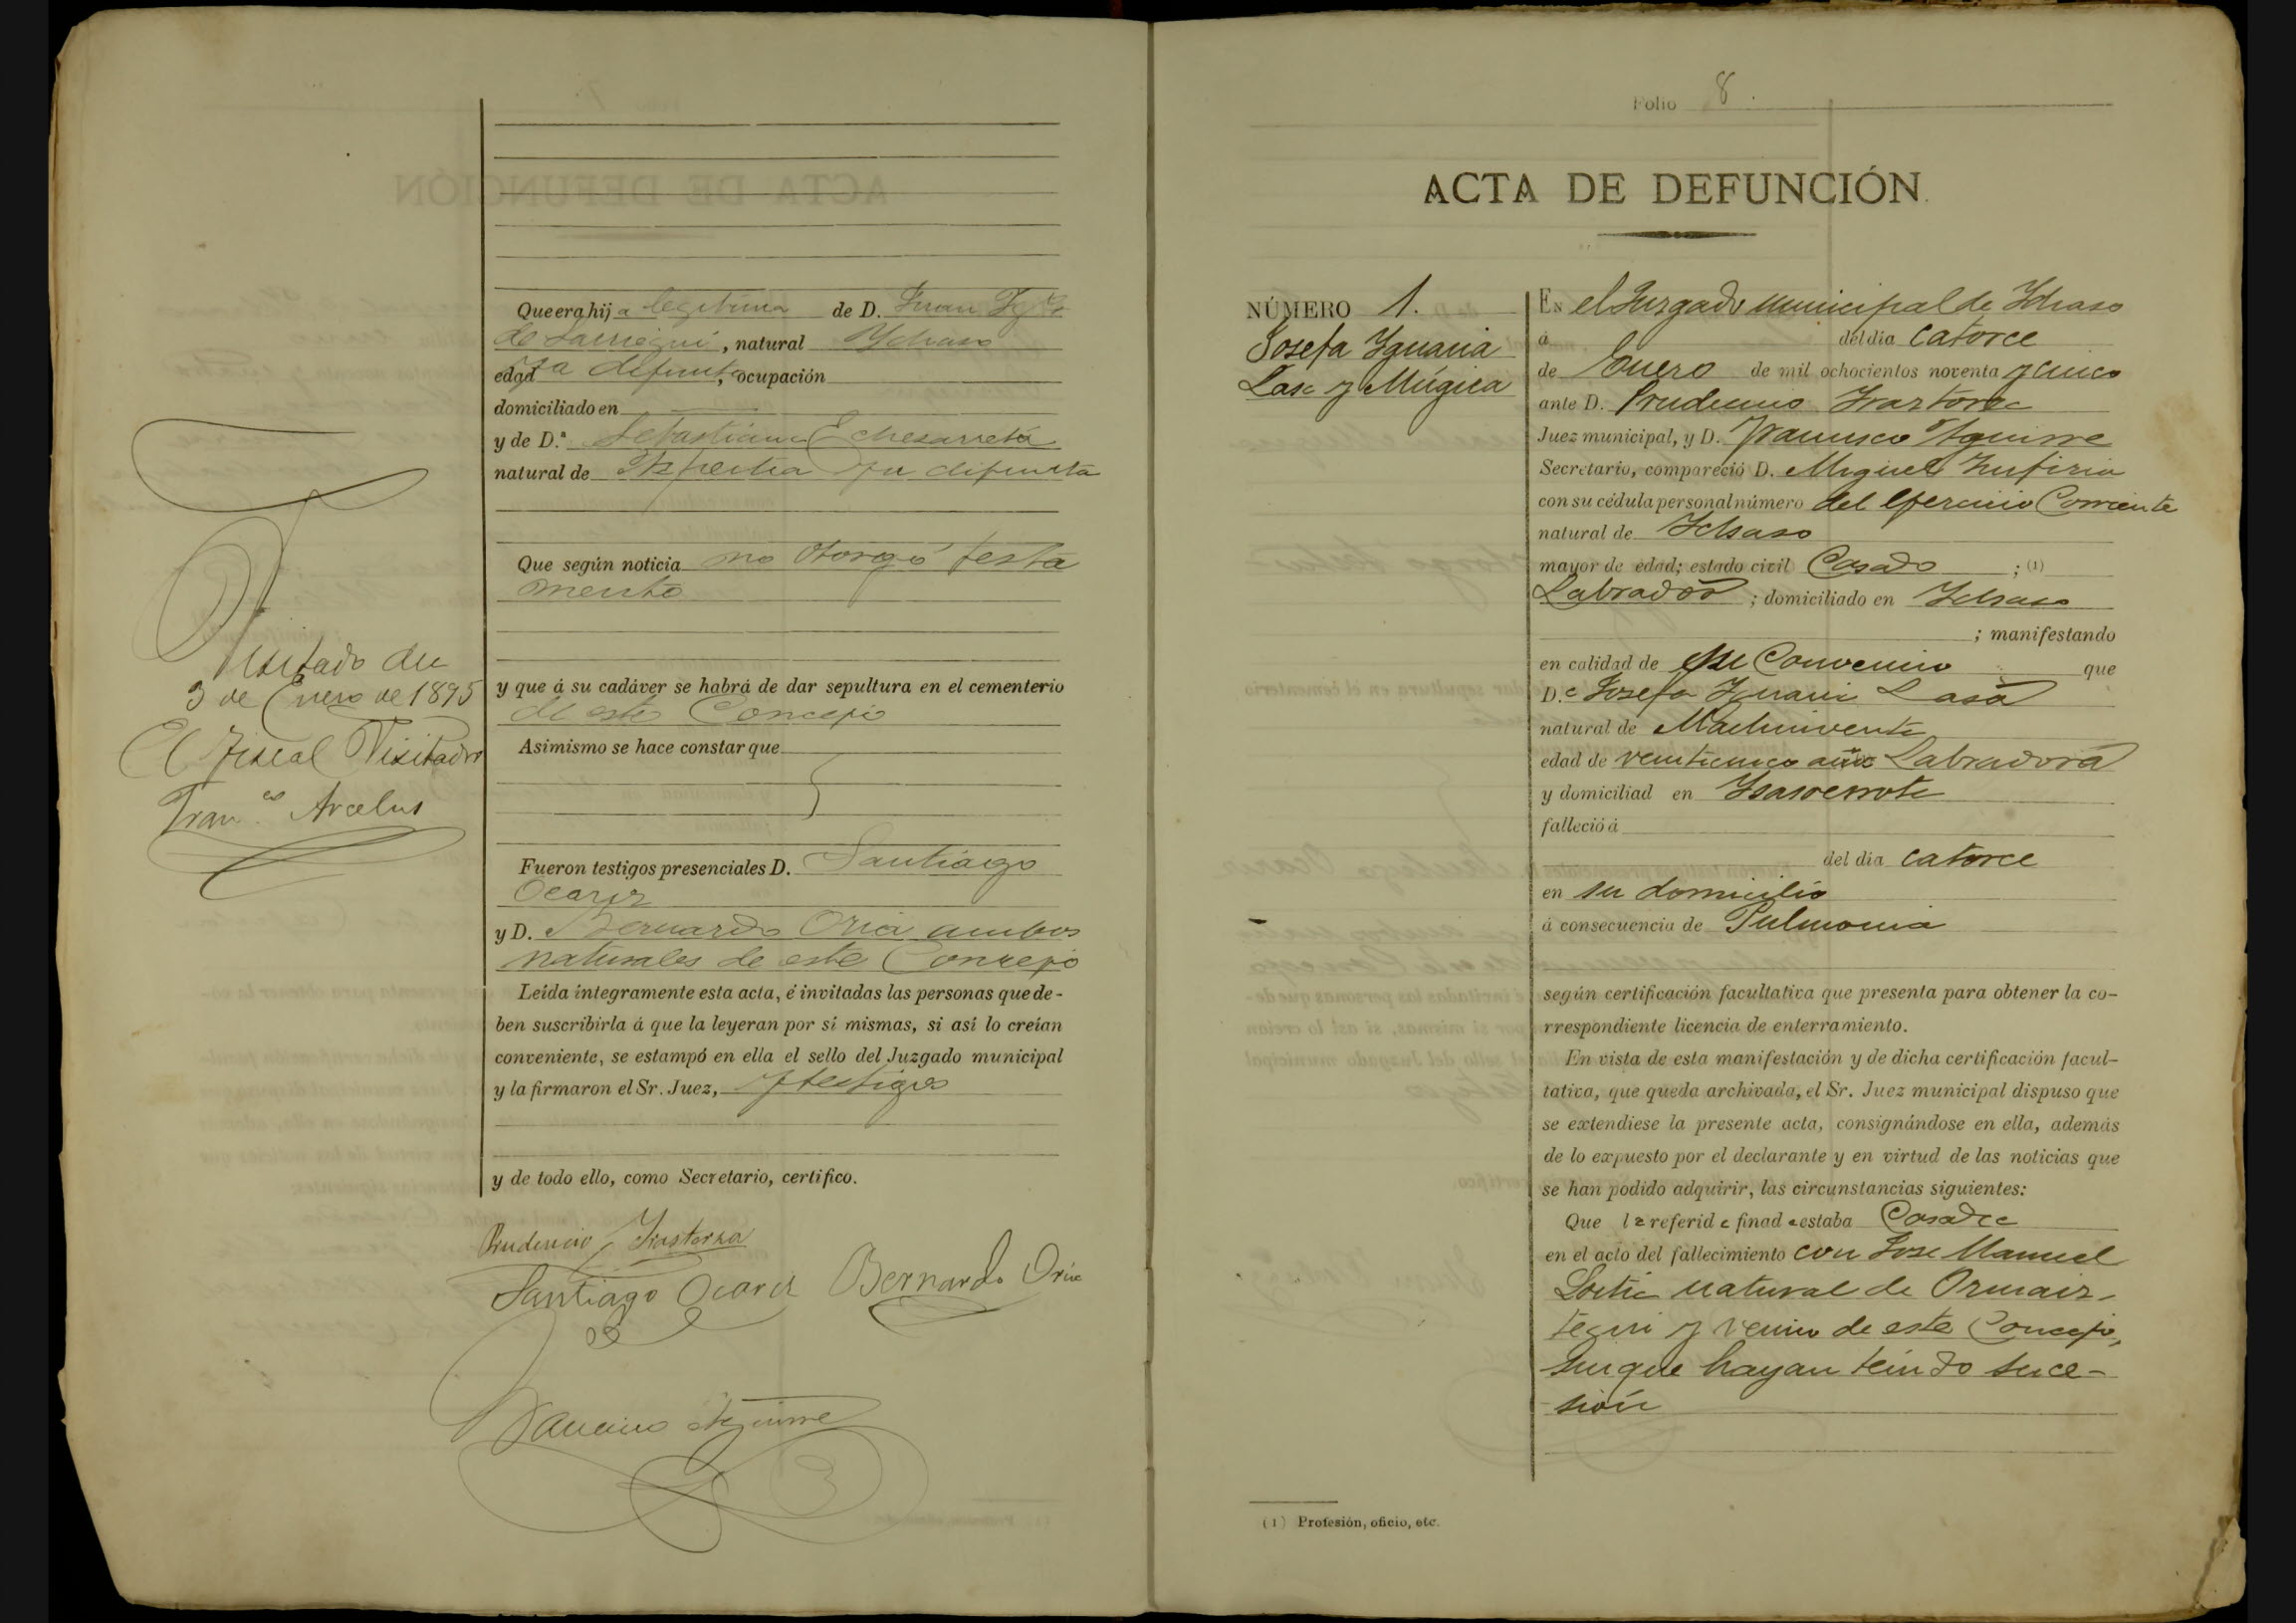 Que era hija legitima de D. Juan Ygo
de Larrregui, natural Ychaso
edad ya difunto, ocupación
domiciliado en
y de D.ª Sebastiana Echesarreta
natural de Azpeitia ya difunta
Que según noticia no otorgó testa
mento
y que á su cadáver se habrá de dar sepultura en el cementerio
de este Concejo
Asimismo se hace constar que
Fueron testigos presenciales D. Santiago
Ocariz
y D. Bernardo Oria ambos
naturales de este Concejo
Leída íntegramente esta acta, é invitadas las personas que de-
ben suscribirla á que la leyeran por sí mismas, si así lo creían
conveniente, se estampó en ella el sello del Juzgado municipal
y la firmaron el Sr. Juez, y testigos
y de todo ello, como Secretario, certifico.
Prudencio Yrastorza
Santiago Ocariz Bernardo Oria
Francisco Aguirre
Visitado dia
3 de Enero de 1895
El Fiscal Visitador
Fran.co Arcelus
Folio 8.
ACTA DE DEFUNCIÓN.
NÚMERO 1.
Josefa Ygnacia
Lasa y Múgica
EN el Juzgado municipal de Ychaso
á del dia catorce
de Enero de mil ochocientos noventa y cinco
ante D. Prudencio Yrastorza
Juez municipal, y D. Francisco Aguirre
Secretario, compareció D. Miguel
con su cédula personal número del Ejercicio Corriente
natural de Ychaso
mayor de edad; estado civil Casado ; (1)
Labrador ; domiciliado en Ychaso
; manifestando
en calidad de su Convecino que
D.a Josefa Ygnacia Lasa
natural de Machinventa
edad de veinticinco años Labradora
y domiciliad en
falleció á
del dia catorce
en su domicilio
á consecuencia de Pulmonia
según certificación facultativa que presenta para obtener la co-
rrespondiente licencia de enterramiento.
En vista de esta manifestación y de dicha certificación facul-
tativa, que queda archivada, el Sr. Juez municipal dispuso que
se extendiese la presente acta, consignándose en ella, además
de lo expuesto por el declarante y en virtud de las noticias que
se han podido adquirir, las circunstancias siguientes:
Que la referida finada estaba Casada
en el acto del fallecimiento con Jose Manuel
natural de Ormaiz-
tegui y vecino de este Concejo,
sin que hayan tenido suce-
sión
(1) Profesión, oficio, etc.